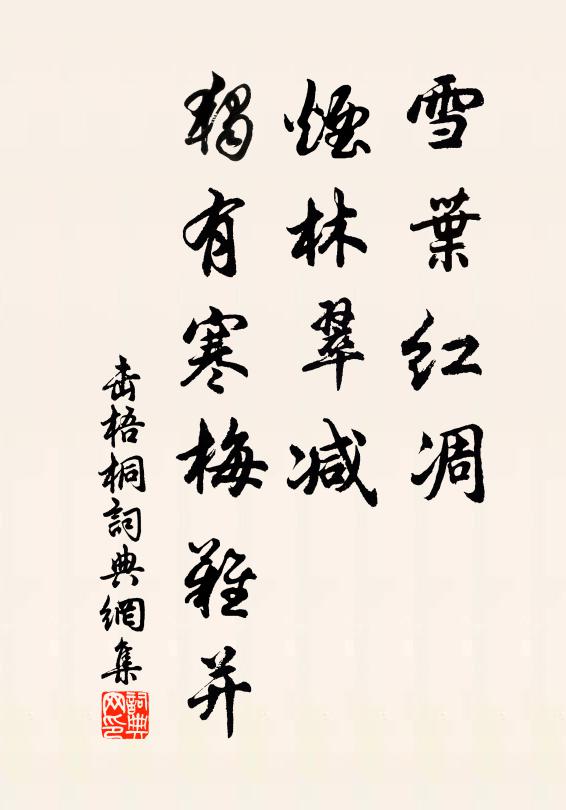 雪葉紅凋
煙林翠減
獨有寒梅難並
击梧桐詞典網集
詞典
网印